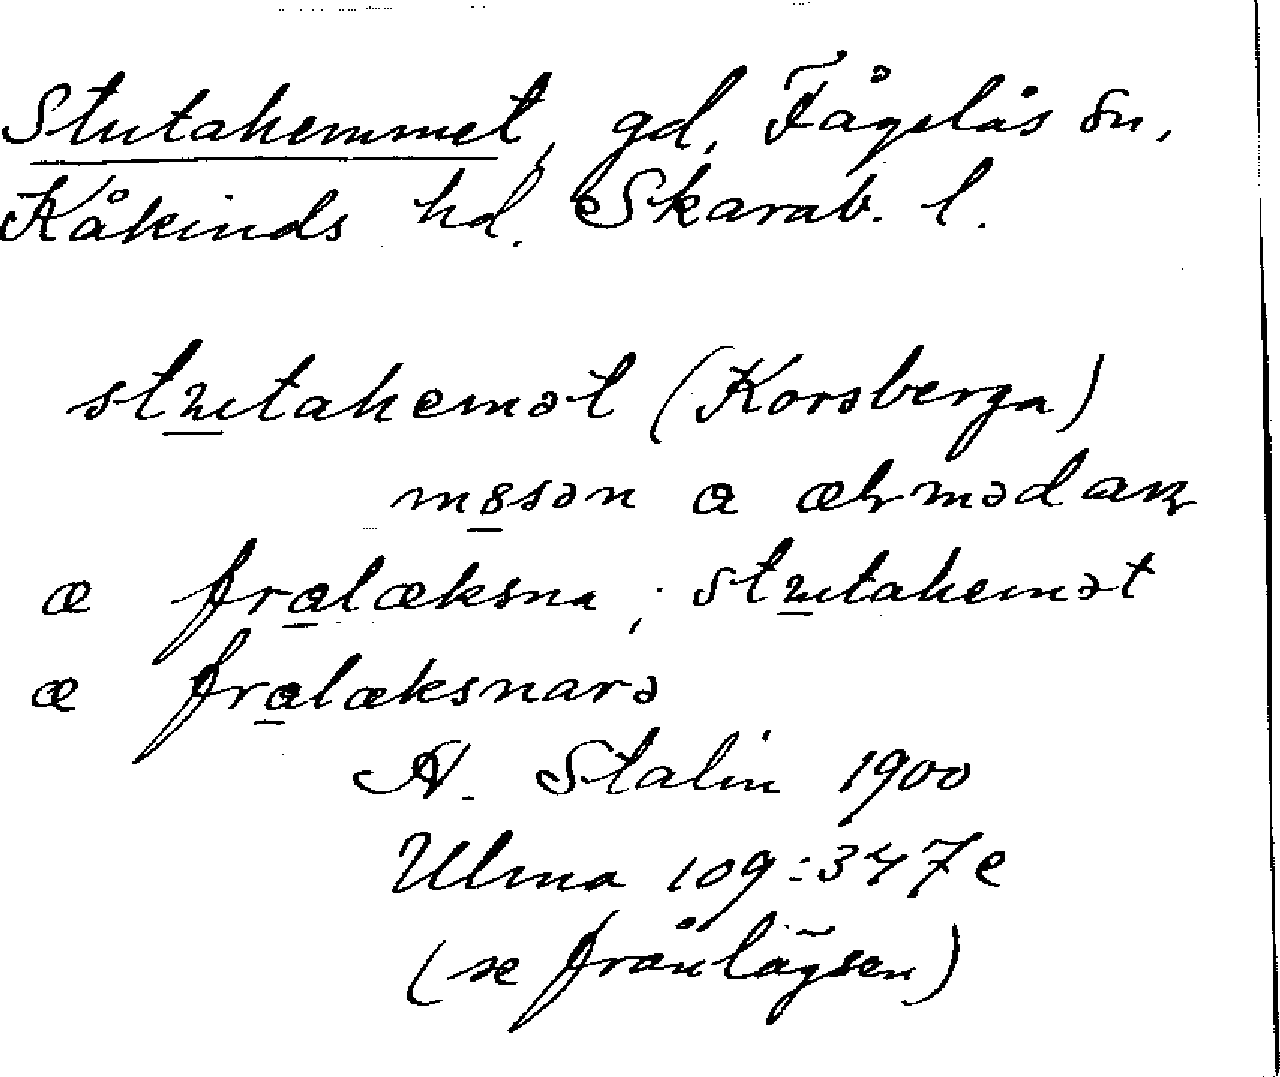 Stutahemmet, gd, Fågelås sn,
Kåkinds hd. Skarab. l.
stutahemət (Korsberga)
məsən a
æ fralæksna; stutahemət
æ fralæksnarə
A. Stalin 1900
Ulma 109:347 e
(se frånlägsen)